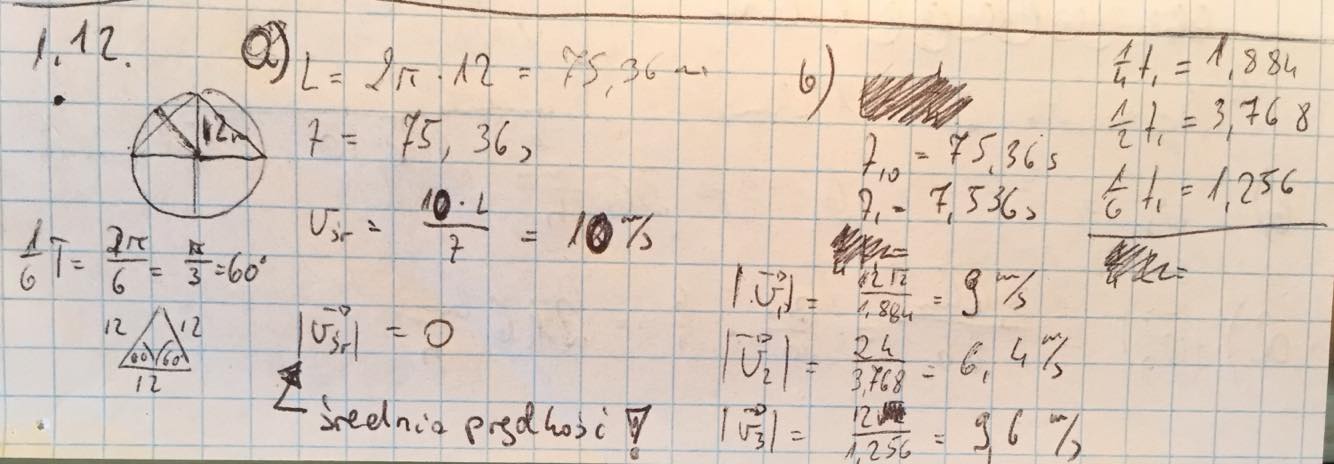 1.12.
12m
1/6 T = 2π/6 = π/3 = 60°
12 12
60 60
12
a) L = 2π · 12 = 75,36 m
7 = 75,36 s
υśr = 10 · L / 7 = 10 m/s
|υśr| = 0
średnia prędkość!
b)
7₁₀ = 75,36 s
7₁ = 7,536 s
|υ₁| = 12√2 / 1,884 = 9 m/s
|υ₂| = 24 / 3,768 = 6,4 m/s
|υ₃| = 12 / 1,256 = 9,6 m/s
1/4 t₁ = 1,884
1/2 t₁ = 3,768
1/6 t₁ = 1,256